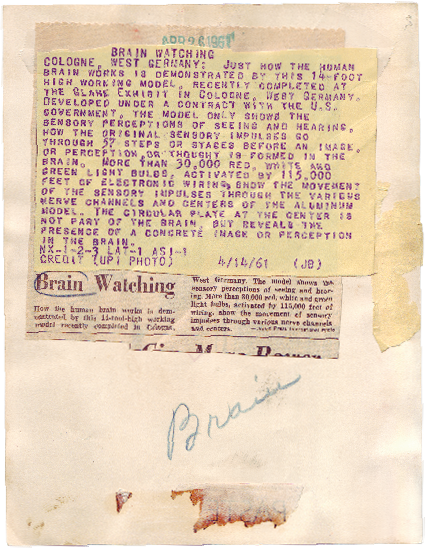 APR 26 1961
BRAIN WATCHING
COLOGNE, WEST GERMANY: JUST HOW THE HUMAN
BRAIN WORKS IS DEMONSTRATED BY THIS 14-FOOT
HIGH WORKING MODEL, RECENTLY COMPLETED AT
THE CLARK EXHIBIT IN COLOGNE, WEST GERMANY.
DEVELOPED UNDER A CONTRACT WITH THE U.S.
GOVERNMENT, THE MODEL ONLY SHOWS THE
SENSORY PERCEPTIONS OF SEEING AND HEARING,
HOW THE ORIGINAL SENSORY IMPULSES GO
THROUGH 57 STEPS OR STAGES BEFORE AN IMAGE,
OR PERCEPTION, OR THOUGHT IS FORMED IN THE
BRAIN. MORE THAN 30,000 RED, WHITE AND
GREEN LIGHT BULBS, ACTIVATED BY 115,000
FEET OF ELECTRONIC WIRING, SHOW THE MOVEMENT
OF THE SENSORY IMPULSES THROUGH THE VARIOUS
NERVE CHANNELS AND CENTERS OF THE ALUMINUM
MODEL. THE CIRCULAR PLATE AT THE CENTER IS
NOT PART OF THE BRAIN, BUT REVEALS THE
PRESENCE OF A CONCRETE IMAGE OR PERCEPTION
IN THE BRAIN.
NX-1-2-3 LAT-1 ASI-1
CREDIT (UPI PHOTO) 4/14/61 (JB)
Brain Watching
How the human brain works is dem-
onstrated by this 14-foot-high working
model recently completed in Cologne,
West Germany. The model shows the
sensory perceptions of seeing and hear-
ing. More than 30,000 red, white and green
light bulbs, activated by 115,000 feet of
wiring, show the movement of sensory
impulses through various nerve channels
and centers.
More Power
Brain